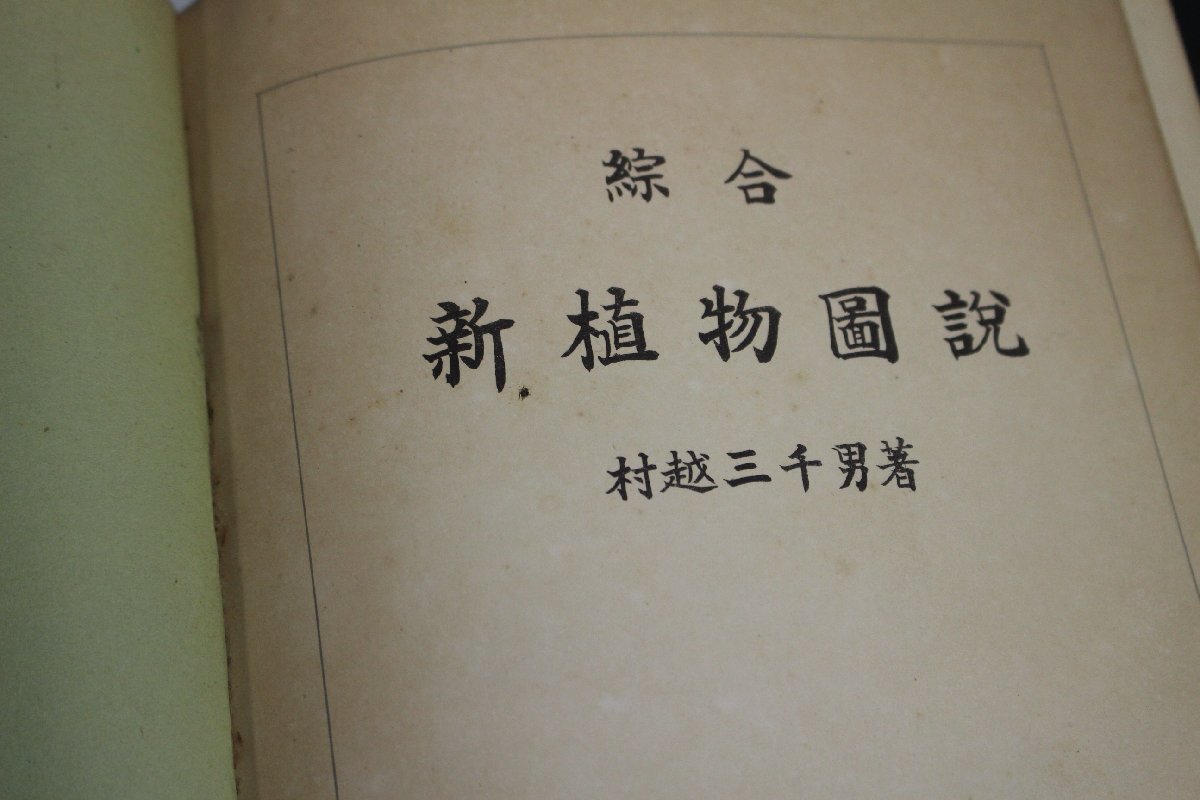 綜合
新植物圖說
村越三千男著